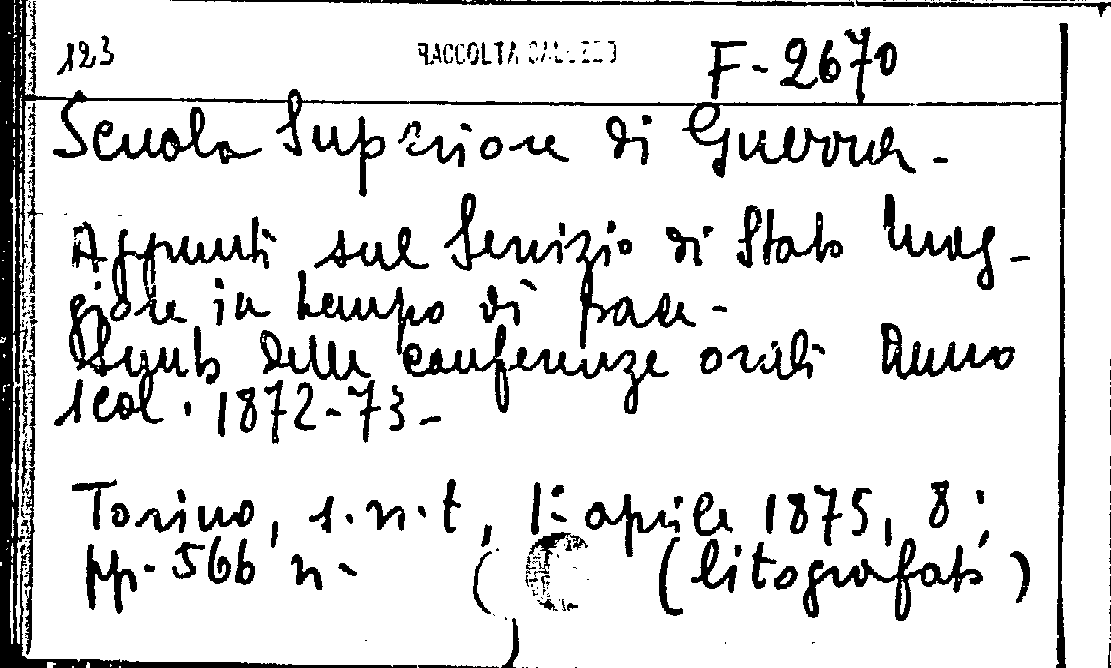 123 RACCOLTA GALEZZO F-2670
Scuola Superiore di Guerra -
Appunti sul Servizio di Stato Mag-
giore in tempo di pace -
Sunto delle conferenze orali Anno
scol. 1872-73 -
Torino, s.n.t, 1° aprile 1875, 8°,
pp. 566 n - ( (litografato)
)